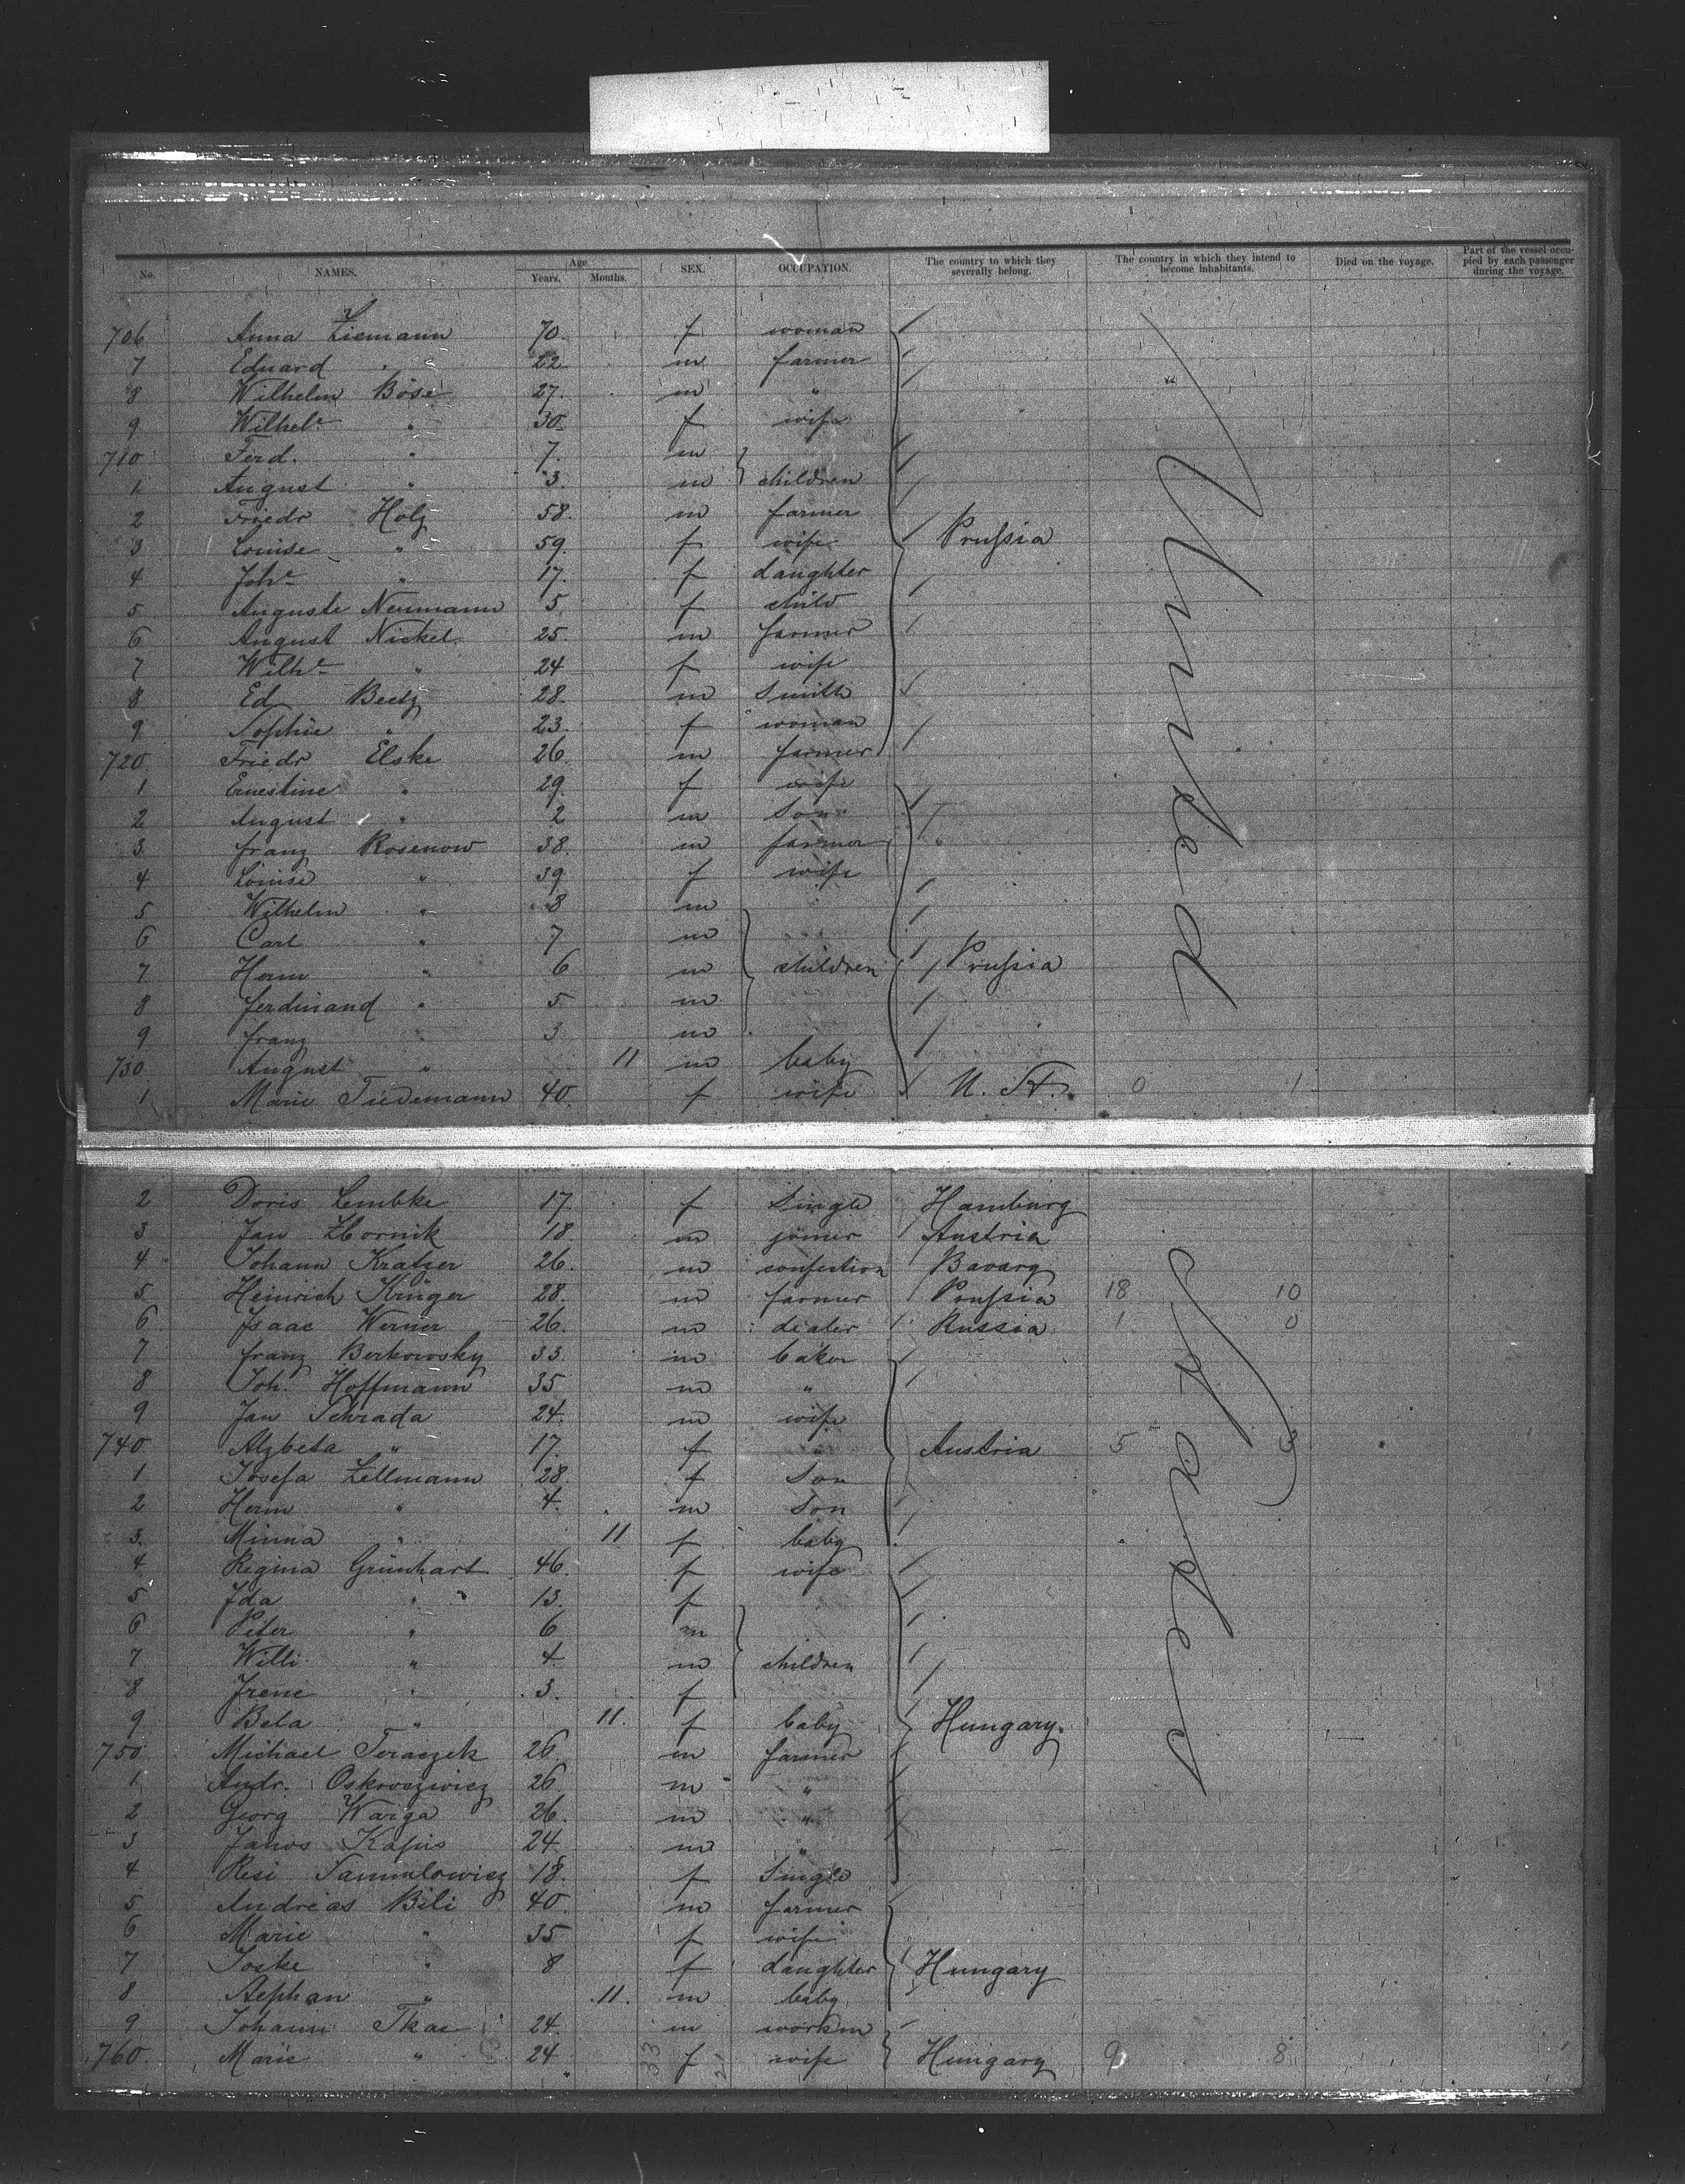 No. NAMES. Age Years. Months. SEX. OCCUPATION. The country to which they severally belong. The country in which they intend to become inhabitants. Died on the voyage. Part of the vessel occupied by each passenger during the voyage.
706 Anna Ziemann 70. f woman
7 Eduard " 22. m farmer
8 Wilhelm Böse 27. m "
9 Wilhel.e " 30. f wife
710 Ferd. " 7. m
1 August " 3. m children
2 Friedr Holz 58. m farmer
3 Louise " 59. f wife Prussia
4 Joh.e " 17. f daughter
5 Auguste Neumann 5. f child
6 August Nickel 25. m farmer
7 Wilh.e " 24 f wife
8 Ed Beetz 28. m Smith
9 Sophie " 23. f woman
720 Friedr Elske 26. m farmer
1 Ernestine " 29. f wife
2 August " 2 m Son
3 Franz Rosenow 38. m farmer
4 Louise " 39 f wife
5 Wilhelm " 8 m
6 Carl " 7 m
7 Herm " 6 m children Prussia
8 Ferdinand " 5 m
9 Franz " 3 m
730 August " 11 m baby
1 Marie Tiedemann 40. f wife U. St. 0 1
2 Doris Lembke 17. f Single Hamburg
3 Jan Zbornik 18. m joiner Austria
4 Johann Kratzer 26. m confection Bavarg
5 Heinrich Krüger 28. m farmer Prussia 18 10
6 Isaac Werner 26. m dealer Russia 1 0
7 Franz Berkowsky 33. m baker
8 Joh. Hoffmann 35 m "
9 Jan Schrada 24. m wife
740 Alzbeta " 17. f " Austria 5 3
1 Josefa Zellmann 28. f Son
2 Herm " 4. m Son
3. Minna " 11 f baby
4 Regina Grünhart 46. f wife
5 Ida " 13. f
6 Peter " 6 m
7 Willi " 4 m children
8 Irene " 3. f
9 Bela " 11. f baby Hungary.
750 Michael Teraszek 26. m farmer
1 Andr. Oskroszwicz 26. m "
2 Georg Warga 26. m "
3 Janos 24. m "
4 Resi 18. f Single
5 Andreas Bili 40. m farmer
6 Marie " 35 f wife
7 Joske " 8 f daughter Hungary
8 " 11. m baby
9 Johann Tkac 24. m workm
760. Marie " 24 33 f 21 wife Hungary 9 8